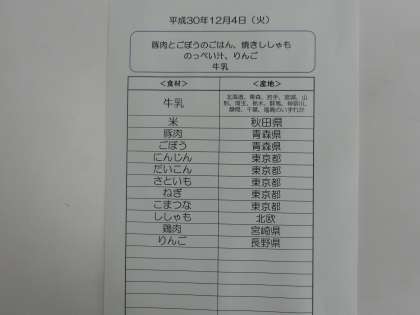 平成30年12月4日（火）
豚肉とごぼうのごはん、焼きししゃも
のっぺい汁、りんご
牛乳
＜食材＞ ＜産地＞
牛乳 北海道、青森、岩手、宮城、山
形、埼玉、栃木、群馬、神奈川、
静岡、千葉、福島のいずれか
米 秋田県
豚肉 青森県
ごぼう 青森県
にんじん 東京都
だいこん 東京都
さといも 東京都
ねぎ 東京都
こまつな 東京都
ししゃも 北欧
鶏肉 宮崎県
りんご 長野県